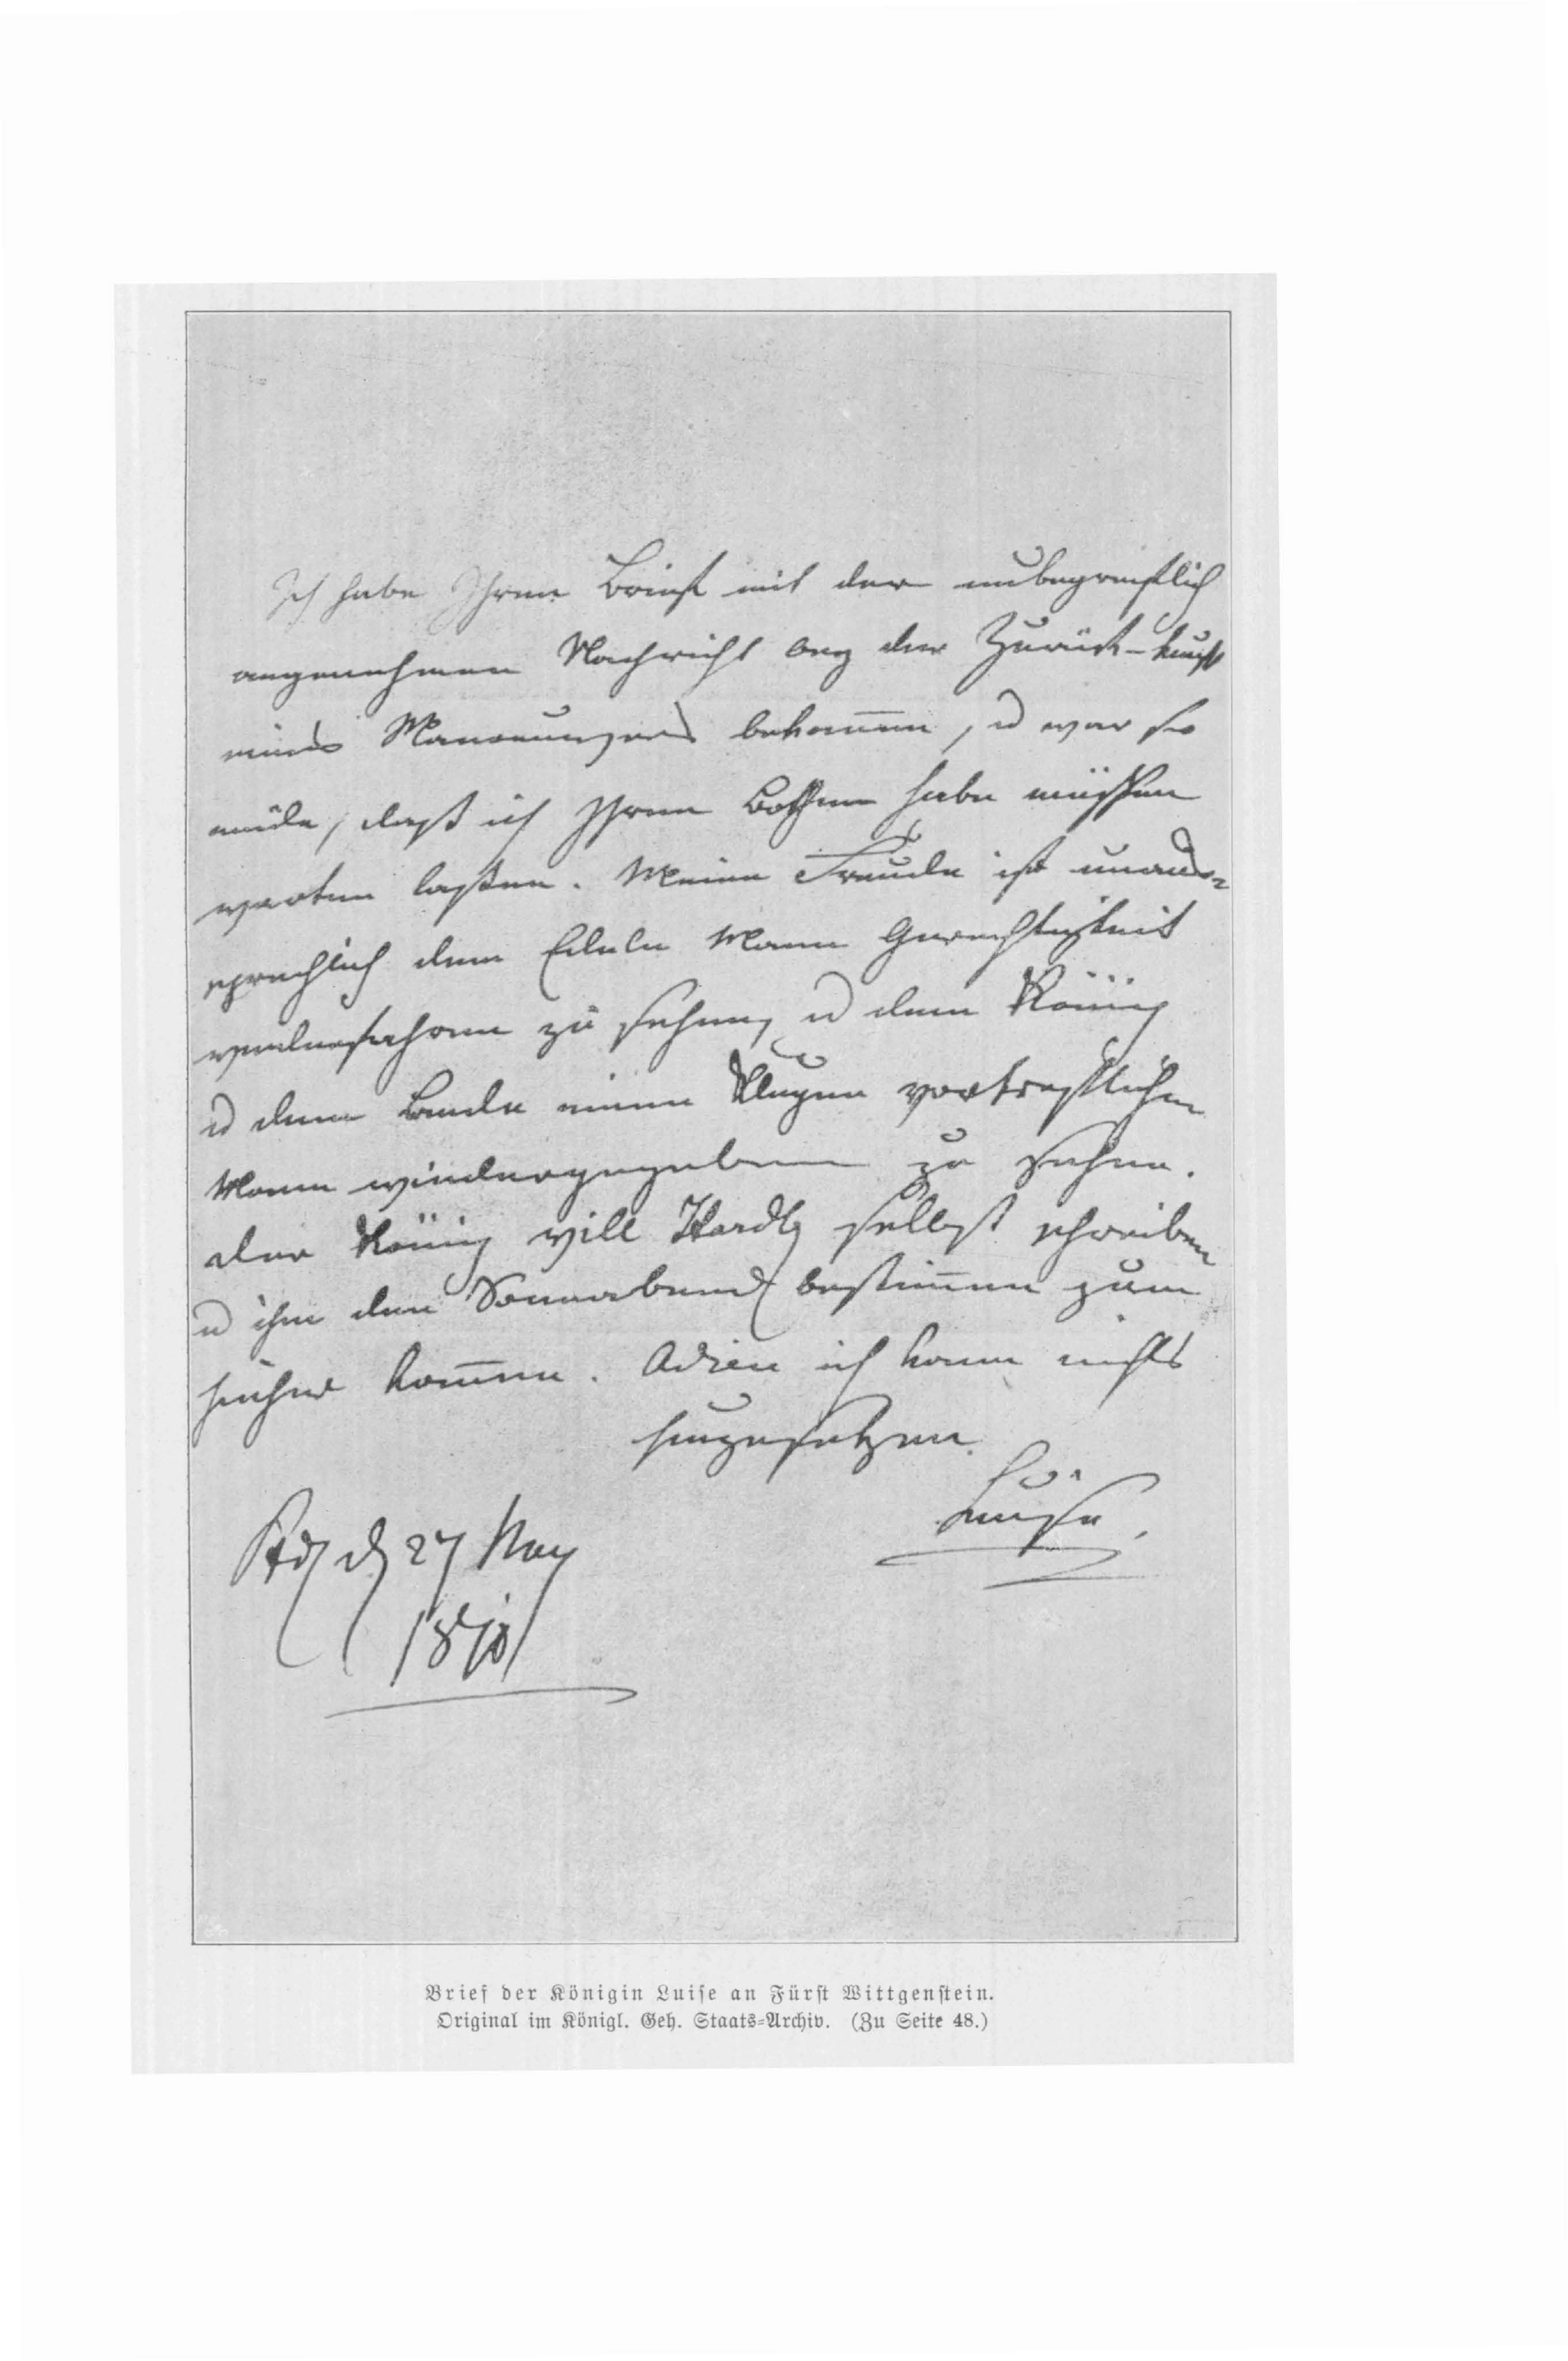 Ich habe Ihren Brief mit der unbegreiflich
angenehmen Nachricht der Zurück-kunft
bekom̅en, u war so
müde, daß ich Ihren Bothen habe müssen
warten laßen. Meine Freude ist unaus-
sprechlich dem Edeln Mann Gerechtigkeit
wiederfahren zu sehen, u dem König
u dem Lande einen Klugen vortreflichen
Mann wiedergegeben zu sehen.
der König will Hardbg selbst schreiben
u ihm den Sonnabend bestim̅en zum
hieher kom̅en. Adieu ich kann nichts
hinzusetzen.
Luise.
d 27 May
1810
Brief der Königin Luise an Fürst Wittgenstein.
Original im Königl. Geh. Staats-Archiv. (Zu Seite 48.)